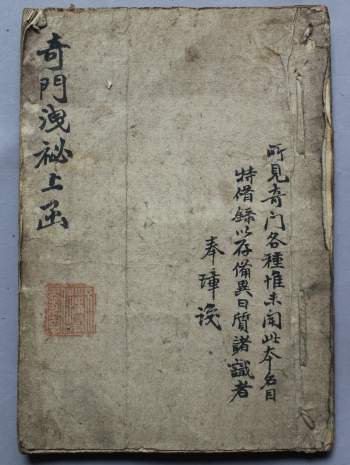 奇門洩祕上函
所見奇门各種惟未聞此本名目
特借録以存備異日質諸識者
奉璋識